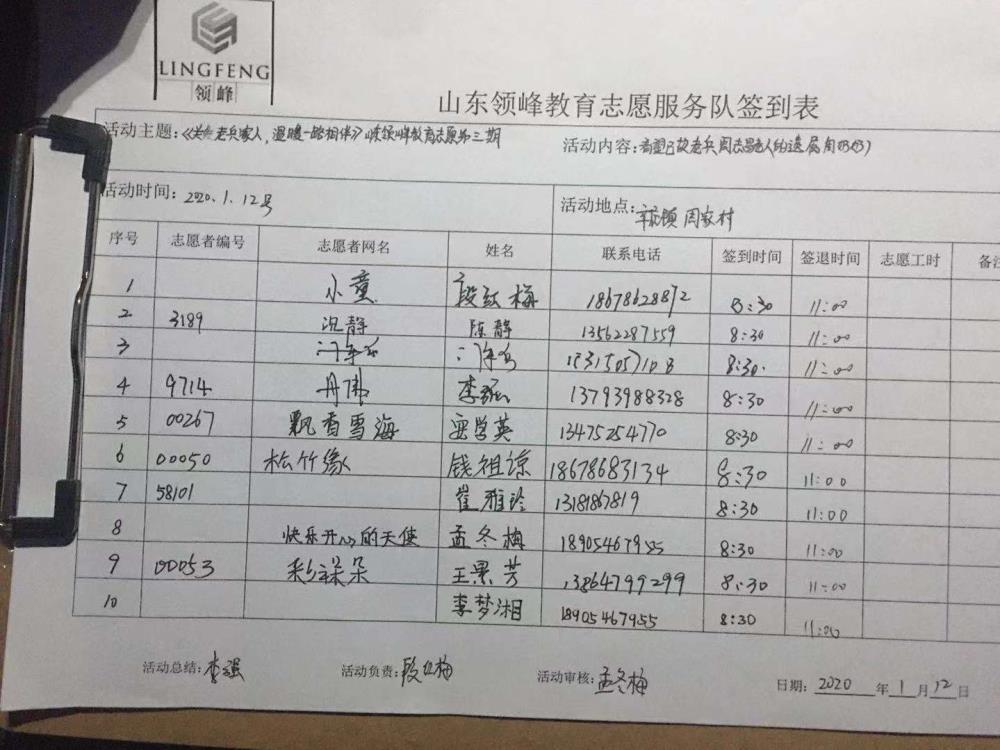 LINGFENG
领峰
山东领峰教育志愿服务队签到表
活动主题:《关爱老兵家人,温暖一路相伴》峰教育志愿第三期
活动内容:老兵周志 人的遗属周奶奶
活动时间: 2020.1.12号
活动地点: 镇 周家村
序号 志愿者编号 志愿者网名 姓名 联系电话 签到时间 签退时间 志愿工时 备注
1 小童 段红梅 18678628872 8:30 11:00
2 3189 沉静 陈静 13562287559 8:30 11:00
3 8:30 11:00
4 9714 丹佛 李 13793988328 8:30 11:00
5 00267 飘香雪海 栾学英 13475254770 8:30 11:00
6 00050 松竹缘 钱祖谅 18678683134 8:30 11:00
7 58101 崔雅玲 13181867819 8:30 11:00
8 快乐开心的天使 孟冬梅 18905467955 8:30 11:00
9 00053 朵 王景芳 13864799299 8:30 11:00
10 李梦湘 18905467955 8:30 11:00
活动总结: 李强 活动负责: 段红梅 活动审核: 孟冬梅 日期: 2020 年 1 月 12 日